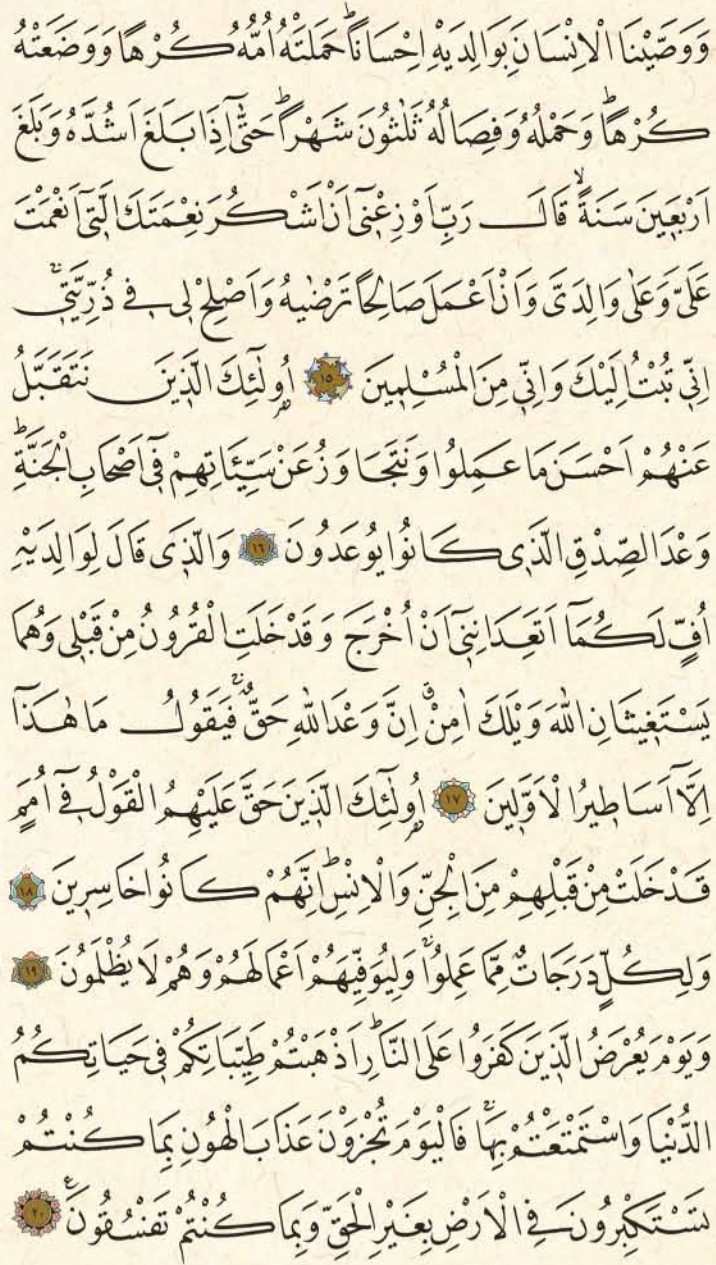 وَوَصَّيْنَا الْاِنْسَانَ بِوَالِدَيْهِ اِحْسَاناًۜ حَمَلَتْهُ اُمُّهُ كُرْهاً وَوَضَعَتْهُ
كُرْهاًۜ وَحَمْلُهُ وَفِصَالُهُ ثَلٰثُونَ شَهْراًۜ حَتّٰٓى اِذَا بَلَغَ اَشُدَّهُ وَبَلَغَ
اَرْبَع۪ينَ سَنَةًۙ قَالَ رَبِّ اَوْزِعْن۪ٓي اَنْ اَشْكُرَ نِعْمَتَكَ الَّت۪ٓي اَنْعَمْتَ
عَلَيَّ وَعَلٰى وَالِدَيَّ وَاَنْ اَعْمَلَ صَالِحاً تَرْضٰيهُ وَاَصْلِحْ ل۪ي ف۪ي ذُرِّيَّت۪يۚ
اِنّ۪ي تُبْتُ اِلَيْكَ وَاِنّ۪ي مِنَ الْمُسْلِم۪ينَ ﴿١٥﴾ اُو۬لٰٓئِكَ الَّذ۪ينَ نَتَقَبَّلُ
عَنْهُمْ اَحْسَنَ مَا عَمِلُوا وَنَتَجَاوَزُ عَنْ سَيِّـَٔاتِهِمْ ف۪ٓي اَصْحَابِ الْجَنَّةِۜ
وَعْدَ الصِّدْقِ الَّذ۪ي كَانُوا يُوعَدُونَ ﴿١٦﴾ وَالَّذ۪ي قَالَ لِوَالِدَيْهِ
اُفٍّ لَكُمَٓا اَتَعِدَانِن۪ٓي اَنْ اُخْرَجَ وَقَدْ خَلَتِ الْقُرُونُ مِنْ قَبْل۪ي وَهُمَا
يَسْتَغ۪يثَانِ اللّٰهَ وَيْلَكَ اٰمِنْۗ اِنَّ وَعْدَ اللّٰهِ حَقٌّۚ فَيَقُولُ مَا هٰذَٓا
اِلَّٓا اَسَاط۪يرُ الْاَوَّل۪ينَ ﴿١٧﴾ اُو۬لٰٓئِكَ الَّذ۪ينَ حَقَّ عَلَيْهِمُ الْقَوْلُ ف۪ٓي اُمَمٍ
قَدْ خَلَتْ مِنْ قَبْلِهِمْ مِنَ الْجِنِّ وَالْاِنْسِۜ اِنَّهُمْ كَانُوا خَاسِر۪ينَ ﴿١٨﴾
وَلِكُلٍّ دَرَجَاتٌ مِمَّا عَمِلُواۚ وَلِيُوَفِّيَهُمْ اَعْمَالَهُمْ وَهُمْ لَا يُظْلَمُونَ ﴿١٩﴾
وَيَوْمَ يُعْرَضُ الَّذ۪ينَ كَفَرُوا عَلَى النَّارِۜ اَذْهَبْتُمْ طَيِّبَاتِكُمْ ف۪ي حَيَاتِكُمُ
الدُّنْيَا وَاسْتَمْتَعْتُمْ بِهَاۚ فَالْيَوْمَ تُجْزَوْنَ عَذَابَ الْهُونِ بِمَا كُنْتُمْ
تَسْتَكْبِرُونَ فِي الْاَرْضِ بِغَيْرِ الْحَقِّ وَبِمَا كُنْتُمْ تَفْسُقُونَ۟ ﴿٢٠﴾